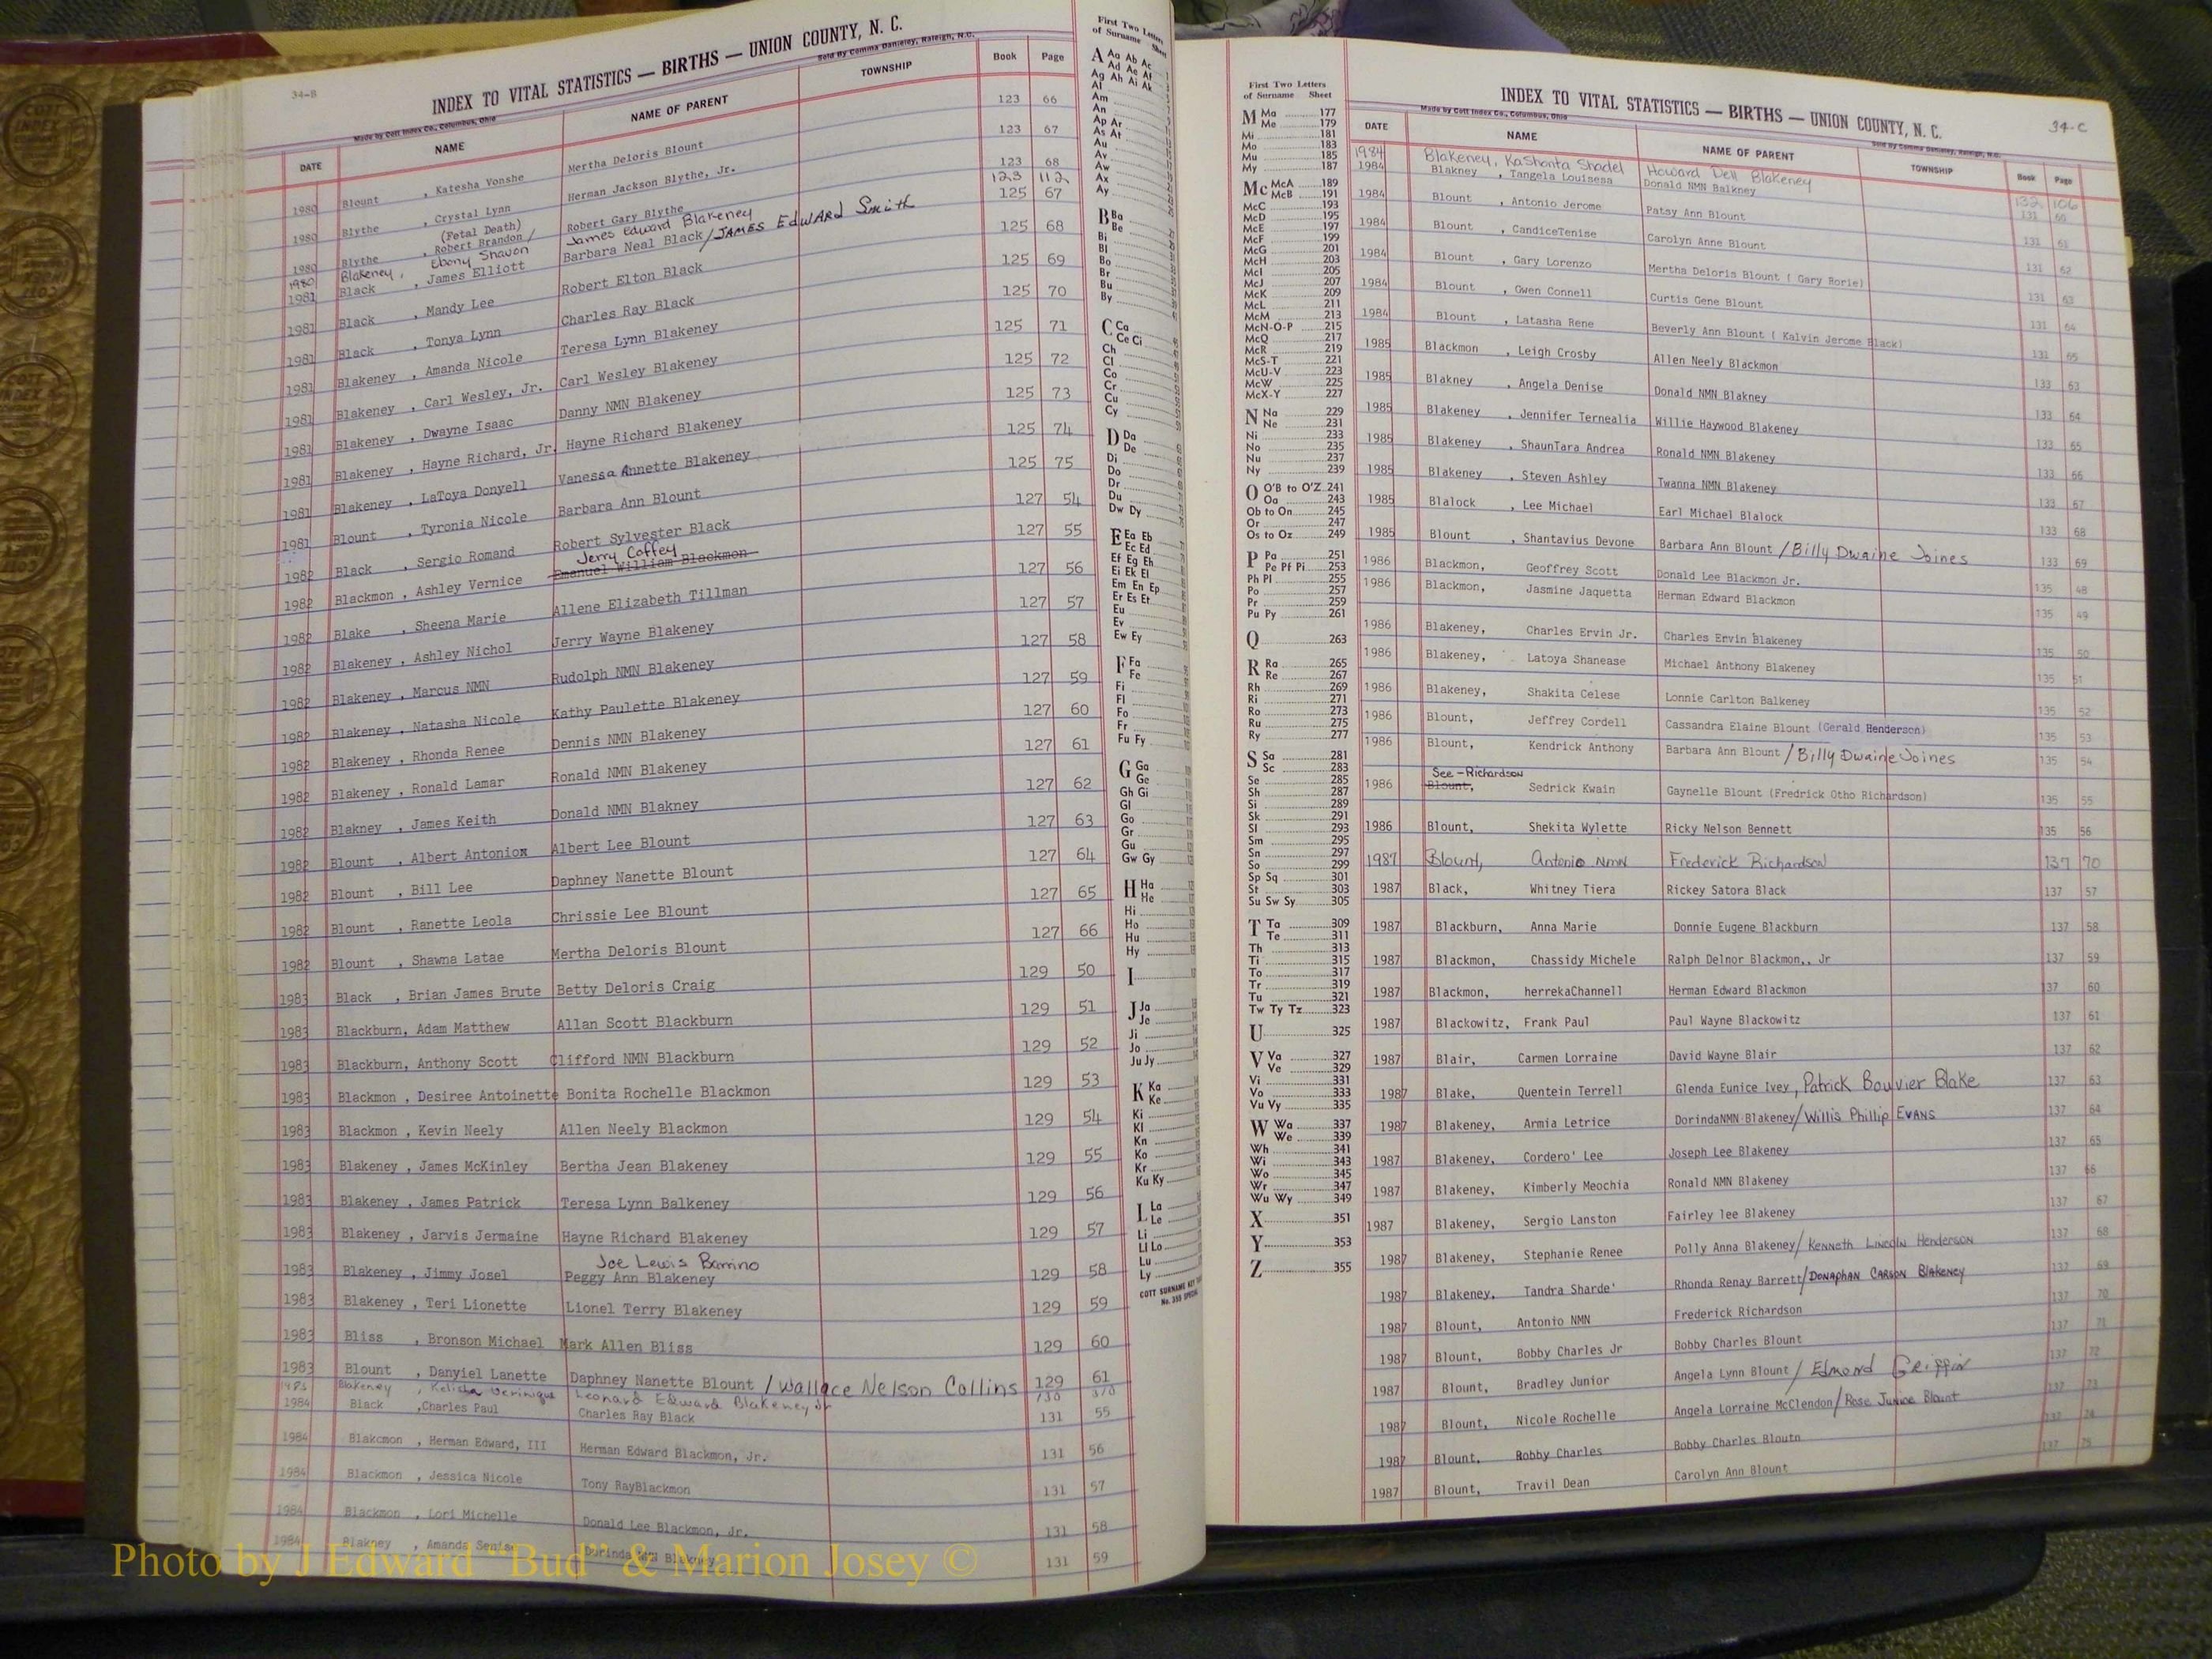 34-B
INDEX TO VITAL STATISTICS — BIRTHS — UNION COUNTY, N. C.
Made by Cott Index Co., Columbus, Ohio
Sold By Comma Danieley, Raleigh, N.C.
DATE NAME NAME OF PARENT TOWNSHIP Book Page
1980 Blount , Katesha Vonshe Mertha Deloris Blount 123 66
1980 Blythe , Crystal Lynn Herman Jackson Blythe, Jr. 123 67
(Fetal Death)
1980 Blythe , Robert Brandon/ Robert Gary Blythe 123 68
1980 Blakeney, Ebony Shavon James Edward Blakeney 123 112
1981 Black , James Elliott Barbara Neal Black/JAMES EdWARd Smith 125 67
1981 Black , Mandy Lee Robert Elton Black 125 68
1981 Black , Tonya Lynn Charles Ray Black 125 69
1981 Blakeney , Amanda Nicole Teresa Lynn Blakeney 125 70
1981 Blakeney , Carl Wesley, Jr. Carl Wesley Blakeney 125 71
1981 Blakeney , Dwayne Isaac Danny NMN Blakeney 125 72
1981 Blakeney , Hayne Richard, Jr. Hayne Richard Blakeney 125 73
1981 Blakeney , LaToya Donyell Vanessa Annette Blakeney 125 74
1981 Blount , Tyronia Nicole Barbara Ann Blount 125 75
1982 Black , Sergio Romand Robert Sylvester Black 127 54
Jerry Coffey
1982 Blackmon , Ashley Vernice Emanuel William Blackmon 127 55
1982 Blake , Sheena Marie Allene Elizabeth Tillman 127 56
1982 Blakeney , Ashley Nichol Jerry Wayne Blakeney 127 57
1982 Blakeney , Marcus NMN Rudolph NMN Blakeney 127 58
1982 Blakeney , Natasha Nicole Kathy Paulette Blakeney 127 59
1982 Blakeney , Rhonda Renee Dennis NMN Blakeney 127 60
1982 Blakeney , Ronald Lamar Ronald NMN Blakeney 127 61
1982 Blakney , James Keith Donald NMN Blakney 127 62
1982 Blount , Albert Antoniox Albert Lee Blount 127 63
1982 Blount , Bill Lee Daphney Nanette Blount 127 64
1982 Blount , Ranette Leola Chrissie Lee Blount 127 65
1982 Blount , Shawna Latae Mertha Deloris Blount 127 66
1983 Black , Brian James Brute Betty Deloris Craig 129 50
1983 Blackburn, Adam Matthew Allan Scott Blackburn 129 51
1983 Blackburn, Anthony Scott Clifford NMN Blackburn 129 52
1983 Blackmon , Desiree Antoinette Bonita Rochelle Blackmon 129 53
1983 Blackmon , Kevin Neely Allen Neely Blackmon 129 54
1983 Blakeney , James McKinley Bertha Jean Blakeney 129 55
1983 Blakeney , James Patrick Teresa Lynn Balkeney 129 56
1983 Blakeney , Jarvis Jermaine Hayne Richard Blakeney 129 57
Joe Lewis Barrino
1983 Blakeney , Jimmy Josel Peggy Ann Blakeney 129 58
1983 Blakeney , Teri Lionette Lionel Terry Blakeney 129 59
1983 Bliss , Bronson Michael Mark Allen Bliss 129 60
1983 Blount , Danyiel Lanette Daphney Nanette Blount /Wallace Nelson Collins 129 61
1983 Blakeney , Leonard Edward Blakeney Jr 130
1984 Black ,Charles Paul Charles Ray Black 131 55
1984 Blakcmon , Herman Edward, III Herman Edward Blackmon, Jr. 131 56
1984 Blackmon , Jessica Nicole Tony RayBlackmon 131 57
1984 Blackmon , Lori Michelle Donald Lee Blackmon, Jr. 131 58
1984 Blakney , Amanda Senise Dorinda NMN Blakney 131 59
First Two Letters
of Surname Sheet
A Aa Ab Ac
Ad Ae Af
Ag Ah Ai Ak
Al
Am
An
Ap Ar
As At
Au
Av
Aw
Ax
Ay
B Ba
Be
Bi
Bl
Bo
Br
Bu
By
C Ca
Ce Ci
Ch
Cl
Co
Cr
Cu
Cy
D Da
De
Di
Do
Dr
Du
Dw Dy
E Ea Eb
Ec Ed
Ef Eg Eh
Ei Ek El
Em En Ep
Er Es Et
Eu
Ev
Ew Ey
F Fa
Fe
Fi
Fl
Fo
Fr
Fu Fy
G Ga
Ge
Gh Gi
Gl
Go
Gr
Gu
Gw Gy
H Ha
He
Hi
Ho
Hu
Hy
I
J Ja
Je
Ji
Jo
Ju Jy
K Ka
Ke
Ki
Kl
Kn
Ko
Kr
Ku Ky
L La
Le
Li
Ll Lo
Lu
Ly
COTT SURNAME KEY
No. 355 SPECIAL
First Two Letters
of Surname Sheet
M Ma 177
Me 179
Mi 181
Mo 183
Mu 185
My 187
Mc McA 189
McB 191
McC 193
McD 195
McE 197
McF 199
McG 201
McH 203
McI 205
McJ 207
McK 209
McL 211
McM 213
McN-O-P 215
McQ 217
McR 219
McS-T 221
McU-V 223
McW 225
McX-Y 227
N Na 229
Ne 231
Ni 233
No 235
Nu 237
Ny 239
O O'B to O'Z 241
Oa 243
Ob to On 245
Or 247
Os to Oz 249
P Pa 251
Pe Pf Pi 253
Ph Pl 255
Po 257
Pr 259
Pu Py 261
Q 263
R Ra 265
Re 267
Rh 269
Ri 271
Ro 273
Ru 275
Ry 277
S Sa 281
Sc 283
Se 285
Sh 287
Si 289
Sk 291
Sl 293
Sm 295
Sn 297
So 299
Sp Sq 301
St 303
Su Sw Sy 305
T Ta 309
Te 311
Th 313
Ti 315
To 317
Tr 319
Tu 321
Tw Ty Tz 323
U 325
V Va 327
Ve 329
Vi 331
Vo 333
Vu Vy 335
W Wa 337
We 339
Wh 341
Wi 343
Wo 345
Wr 347
Wu Wy 349
X 351
Y 353
Z 355
INDEX TO VITAL STATISTICS — BIRTHS — UNION COUNTY, N. C.
34-C
Made by Cott Index Co., Columbus, Ohio
Sold By Comma Danieley, Raleigh, N.C.
DATE NAME NAME OF PARENT TOWNSHIP Book Page
1984 Blakeney, KaShonta Shadel Howard Dell Blakeney 132 106
1984 Blakney , Tangela Louisesa Donald NMN Balkney 131 60
1984 Blount , Antonio Jerome Patsy Ann Blount 131 61
1984 Blount , CandiceTenise Carolyn Anne Blount 131 62
1984 Blount , Gary Lorenzo Mertha Deloris Blount ( Gary Rorie) 131 63
1984 Blount , Owen Connell Curtis Gene Blount 131 64
1984 Blount , Latasha Rene Beverly Ann Blount ( Kalvin Jerome Black) 131 65
1985 Blackmon , Leigh Crosby Allen Neely Blackmon 133 63
1985 Blakney , Angela Denise Donald NMN Blakney 133 64
1985 Blakeney , Jennifer Ternealia Willie Haywood Blakeney 133 65
1985 Blakeney , ShaunTara Andrea Ronald NMN Blakeney 133 66
1985 Blakeney , Steven Ashley Twanna NMN Blakeney 133 67
1985 Blalock , Lee Michael Earl Michael Blalock 133 68
1985 Blount , Shantavius Devone Barbara Ann Blount /Billy Dwaine Joines 133 69
1986 Blackmon, Geoffrey Scott Donald Lee Blackmon Jr. 135 48
1986 Blackmon, Jasmine Jaquetta Herman Edward Blackmon 135 49
1986 Blakeney, Charles Ervin Jr. Charles Ervin Blakeney 135 50
1986 Blakeney, Latoya Shanease Michael Anthony Blakeney 135 51
1986 Blakeney, Shakita Celese Lonnie Carlton Balkeney 135 52
1986 Blount, Jeffrey Cordell Cassandra Elaine Blount (Gerald Henderson) 135 53
1986 Blount, Kendrick Anthony Barbara Ann Blount /Billy Dwaine Joines 135 54
See - Richardson
1986 Blount, Sedrick Kwain Gaynelle Blount (Fredrick Otho Richardson) 135 55
1986 Blount, Shekita Wylette Ricky Nelson Bennett 135 56
1987 Blount, Antonio NMN Frederick Richardson 137 70
1987 Black, Whitney Tiera Rickey Satora Black 137 57
1987 Blackburn, Anna Marie Donnie Eugene Blackburn 137 58
1987 Blackmon, Chassidy Michele Ralph Delnor Blackmon,. Jr 137 59
1987 Blackmon, herrekaChannell Herman Edward Blackmon 137 60
1987 Blackowitz, Frank Paul Paul Wayne Blackowitz 137 61
1987 Blair, Carmen Lorraine David Wayne Blair 137 62
1987 Blake, Quentein Terrell Glenda Eunice Ivey, Patrick Bouvier Blake 137 63
1987 Blakeney, Armia Letrice DorindaNMN Blakeney/Willis Phillip EVANS 137 64
1987 Blakeney, Cordero' Lee Joseph Lee Blakeney 137 65
1987 Blakeney, Kimberly Meochia Ronald NMN Blakeney 137 66
1987 Blakeney, Sergio Lanston Fairley lee Blakeney 137 67
1987 Blakeney, Stephanie Renee Polly Anna Blakeney/ KENNETH LINCOLN HENDERSON 137 68
1987 Blakeney, Tandra Sharde' Rhonda Renay Barrett/DONAPHAN CARSON BLAKENEY 137 69
1987 Blount, Antonio NMN Frederick Richardson 137 70
1987 Blount, Bobby Charles Jr Bobby Charles Blount 137 71
1987 Blount, Bradley Junior Angela Lynn Blount / Elmond Griffin 137 72
1987 Blount, Nicole Rochelle Angela Lorraine McClendon/Rose Junice Blount 137 73
1987 Blount, Bobby Charles Bobby Charles Bloutn 137 74
1987 Blount, Travil Dean Carolyn Ann Blount 137 75
Photo by J Edward “Bud” & Marion Josey ©